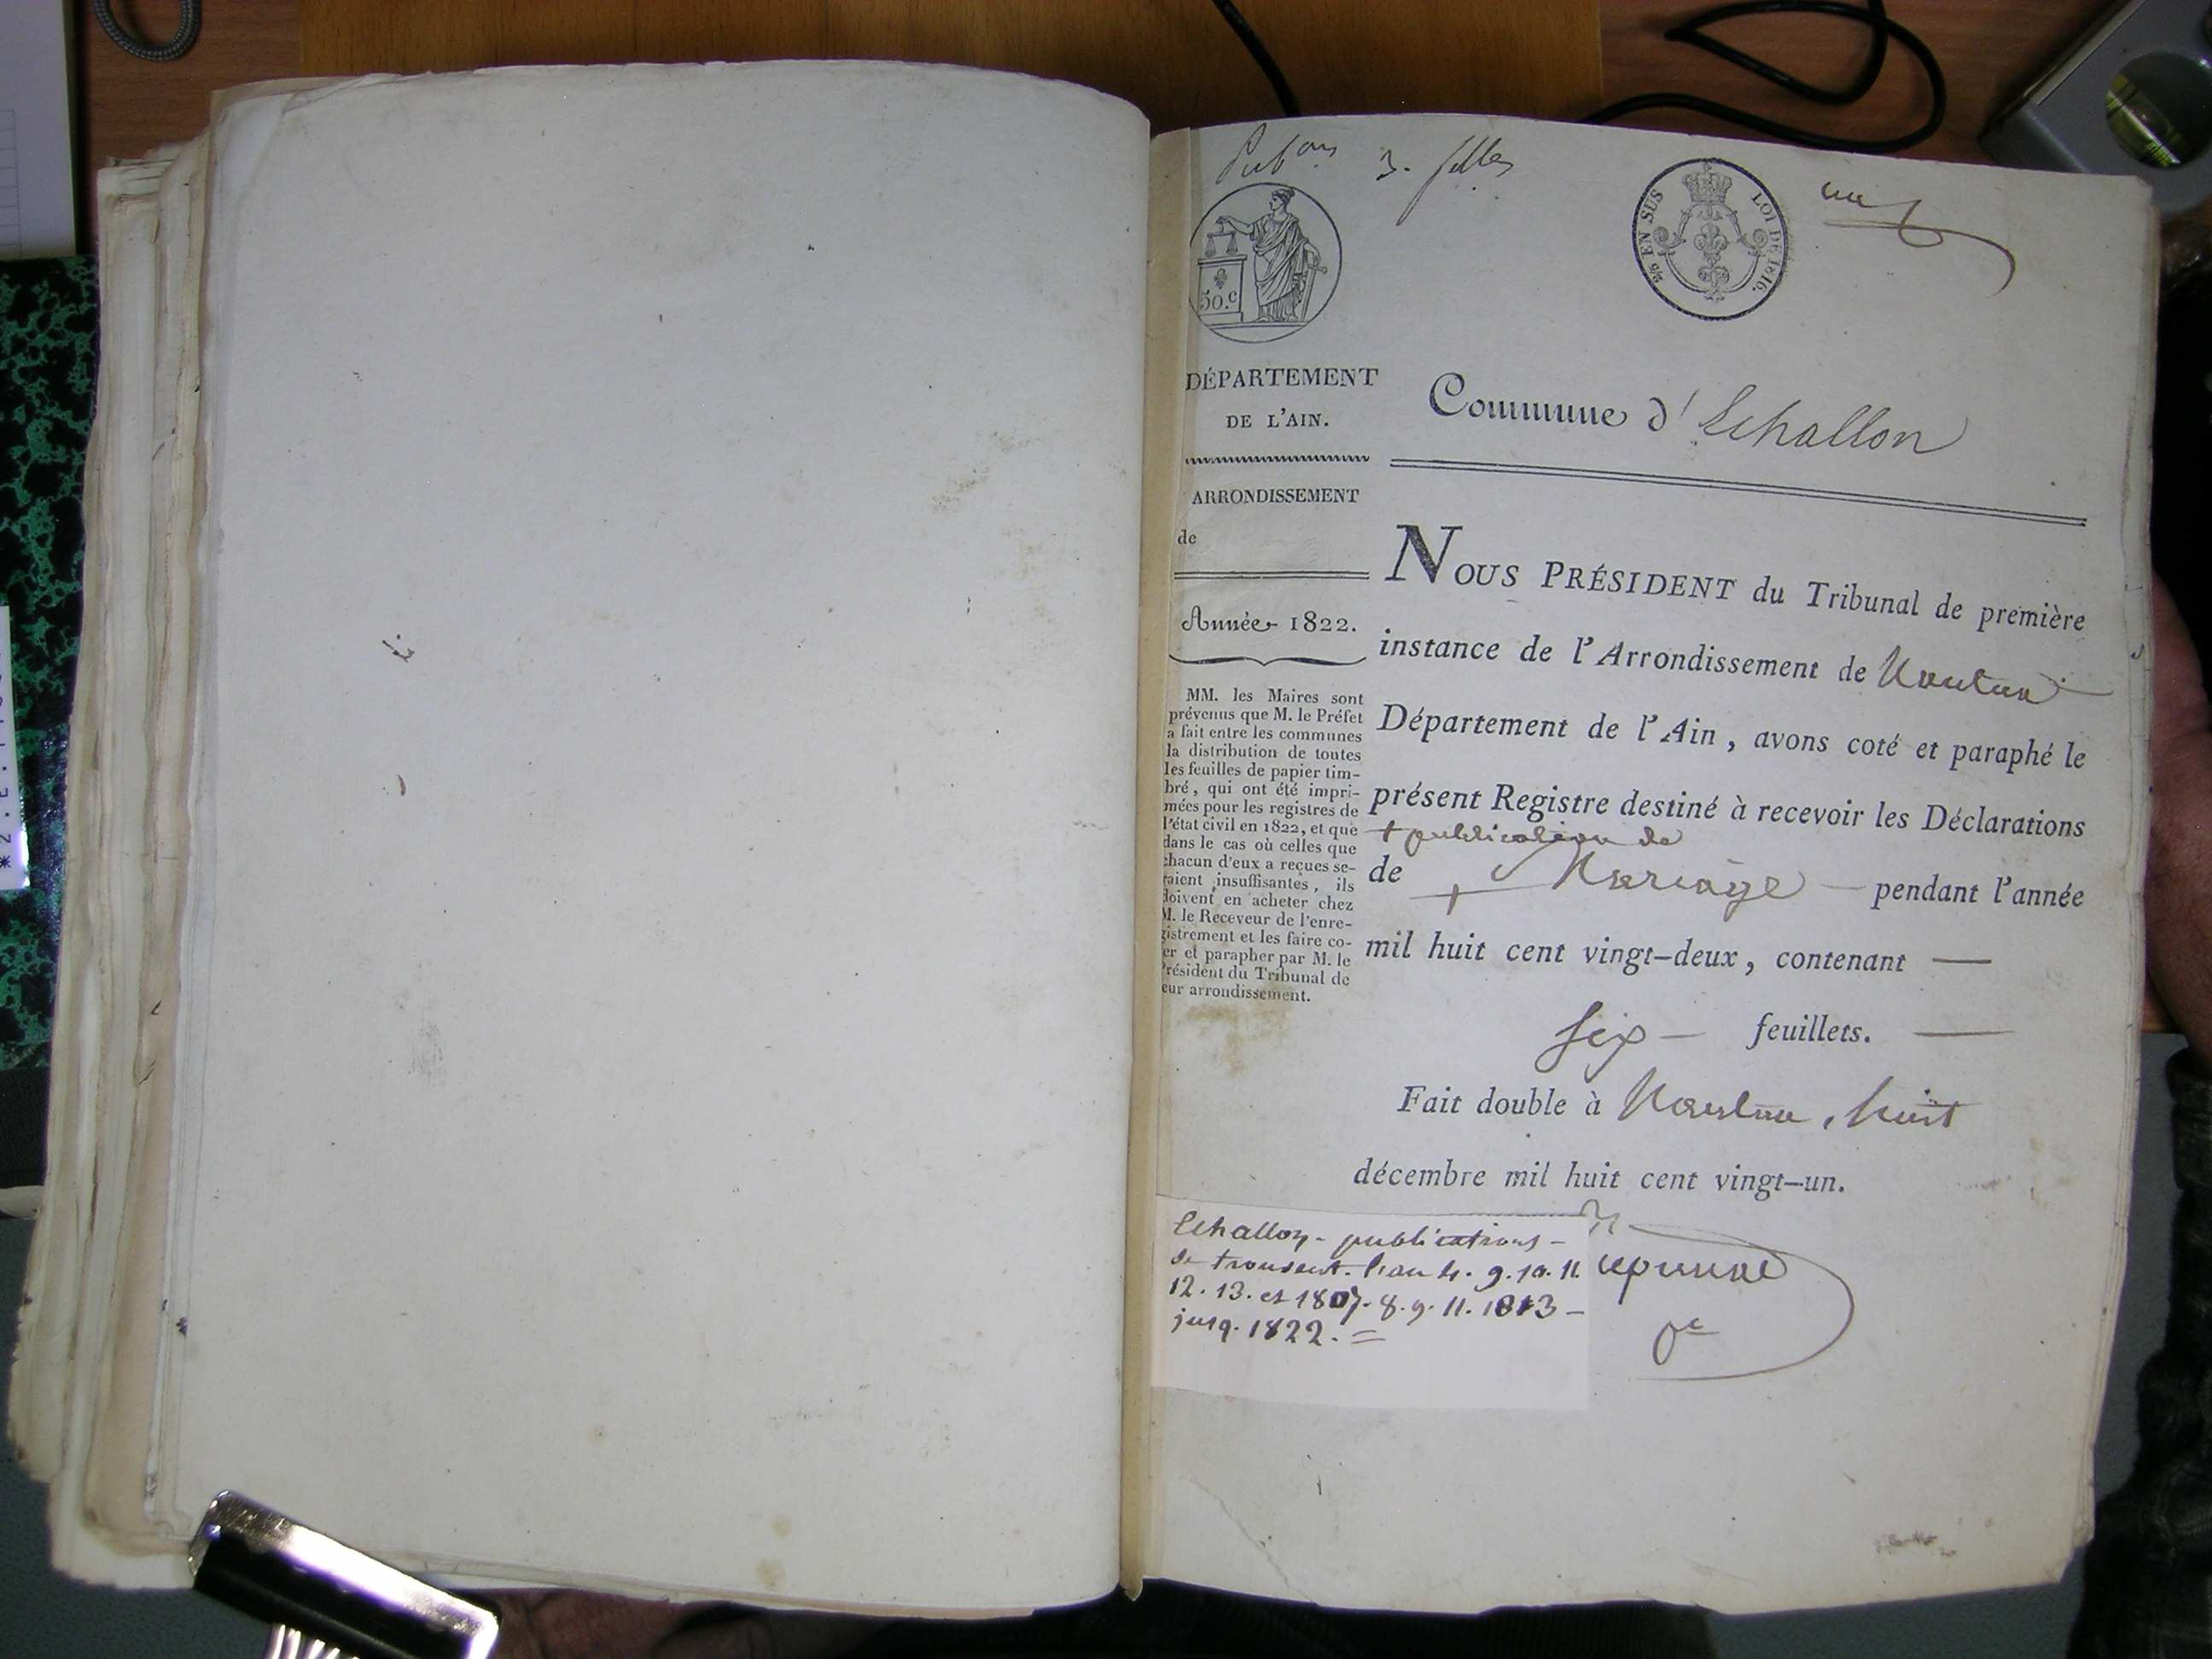 Pub.ons 3. flles
un
50.c
2/5 EN SUS LOI DE 1816.
DÉPARTEMENT
DE L'AIN.
ARRONDISSEMENT
de
Année 1822.
MM. les Maires sont
prévenus que M. le Préfet
a fait entre les communes
la distribution de toutes
les feuilles de papier tim-
bré, qui ont été impri-
mées pour les registres de
l'état civil en 1822, et que
dans le cas où celles que
chacun d'eux a reçues se-
raient insuffisantes, ils
doivent en acheter chez
M. le Receveur de l'enre-
gistrement et les faire co-
er et parapher par M. le
Président du Tribunal de
eur arrondissement.
Commune d'Echallon
NOUS PRÉSIDENT du Tribunal de première
instance de l'Arrondissement de Nantua
Département de l'Ain, avons coté et paraphé le
présent Registre destiné à recevoir les Déclarations
+ publication de
de + Mariage pendant l'année
mil huit cent vingt-deux, contenant —
six — feuillets. —
Fait double à Nantua, huit
décembre mil huit cent vingt-un.
Echallon - publications -
se trouvent. l'an 4. 9. 10. 11.
12. 13. et 1807. 8. 9. 11. 1813 -
jusq. 1822. =